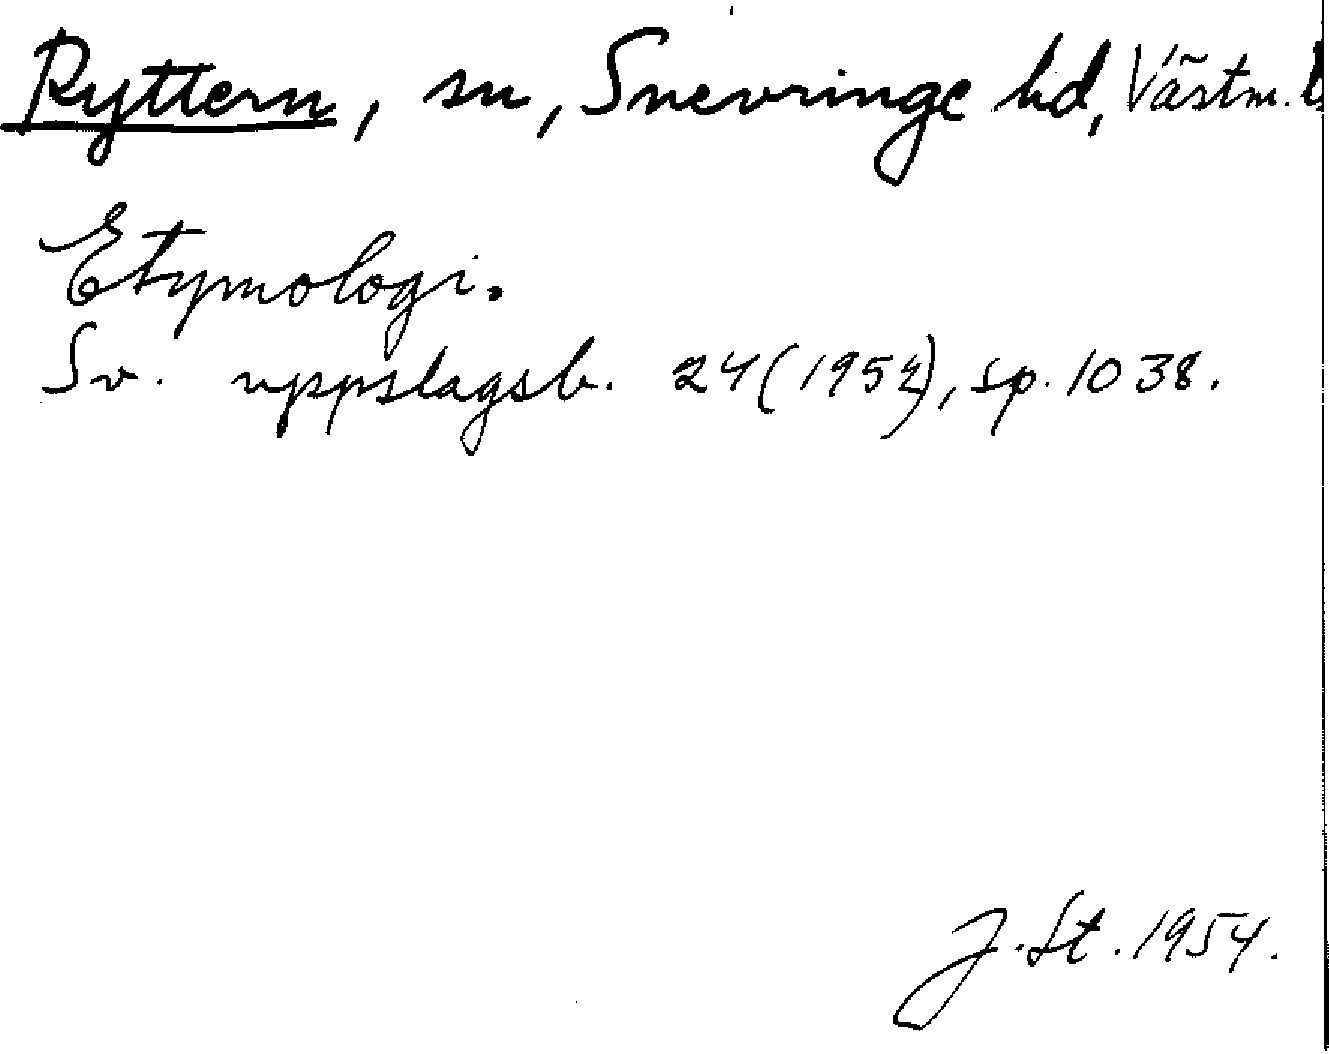 Ryttern, sn, Snevringe hd, Västm. l
Etymologi.
Sv. uppslagsb. 24 (1952), sp. 1038.
J. St. 1954.